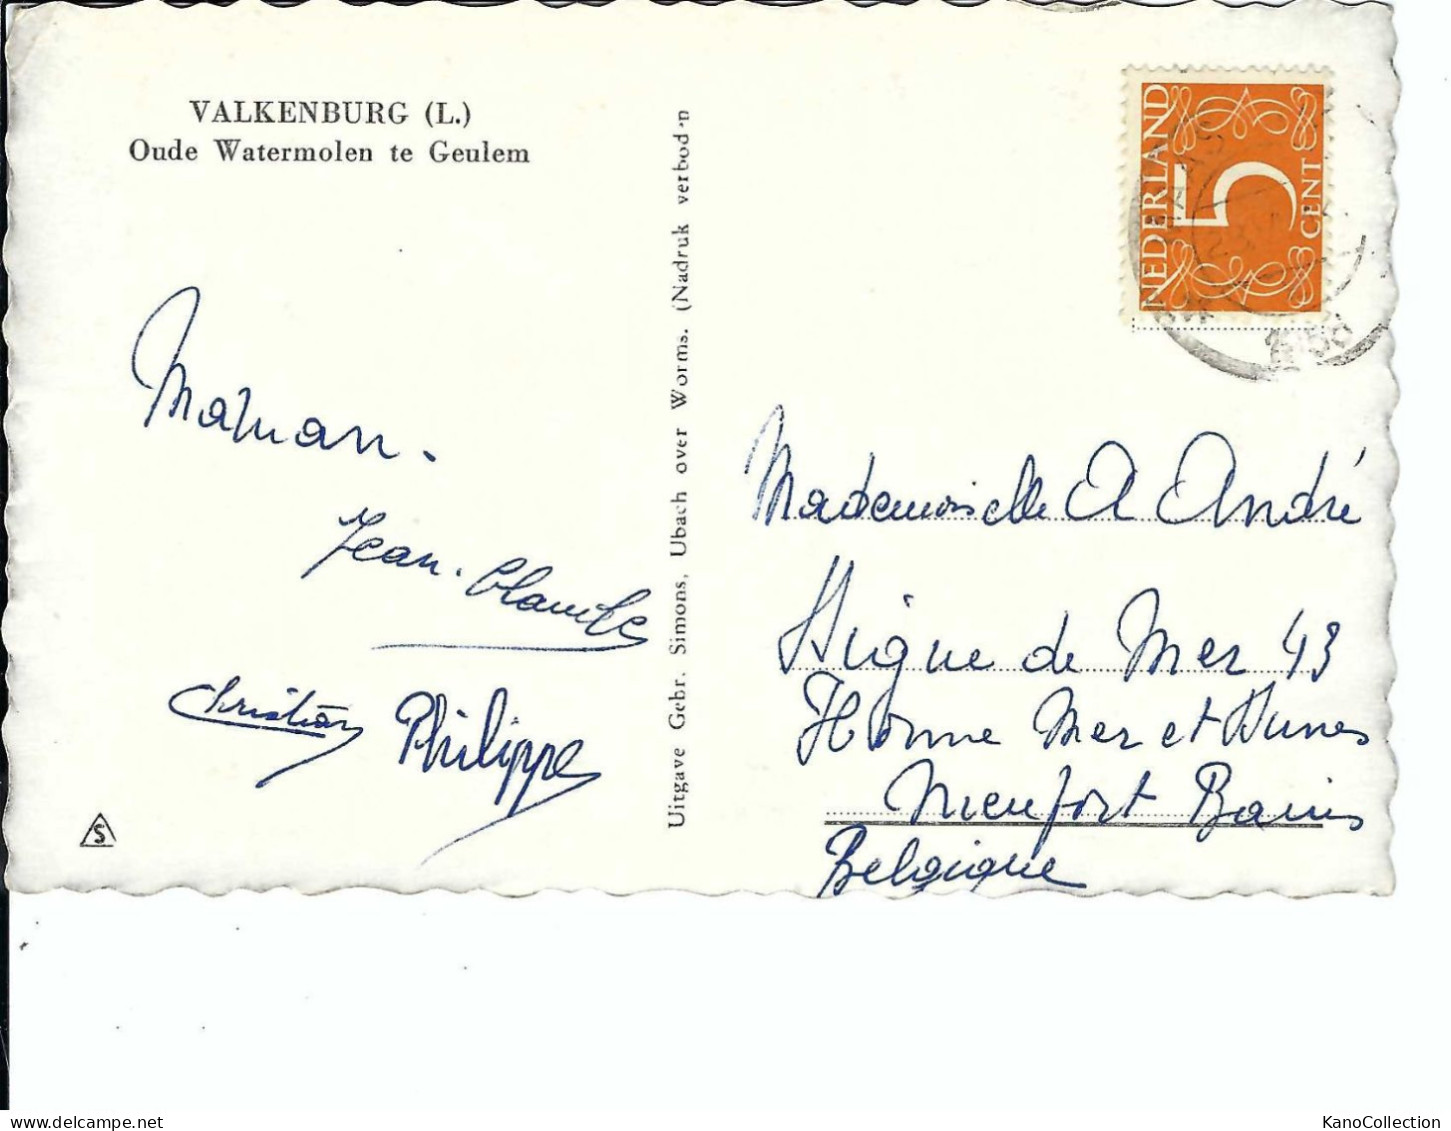 VALKENBURG (L.)
Oude Watermolen te Geulem
Maman.
Jean-Claude
Christian Philippe
S
Uitgave Gebr. Simons, Ubach over Worms. (Nadruk verbod'n
NEDERLAND
5
CENT
Mademoiselle A André
Digue de Mer 43
Home Mer et Dunes
Nieuport Bains
Belgique
www.delcampe.net
KanoCollection